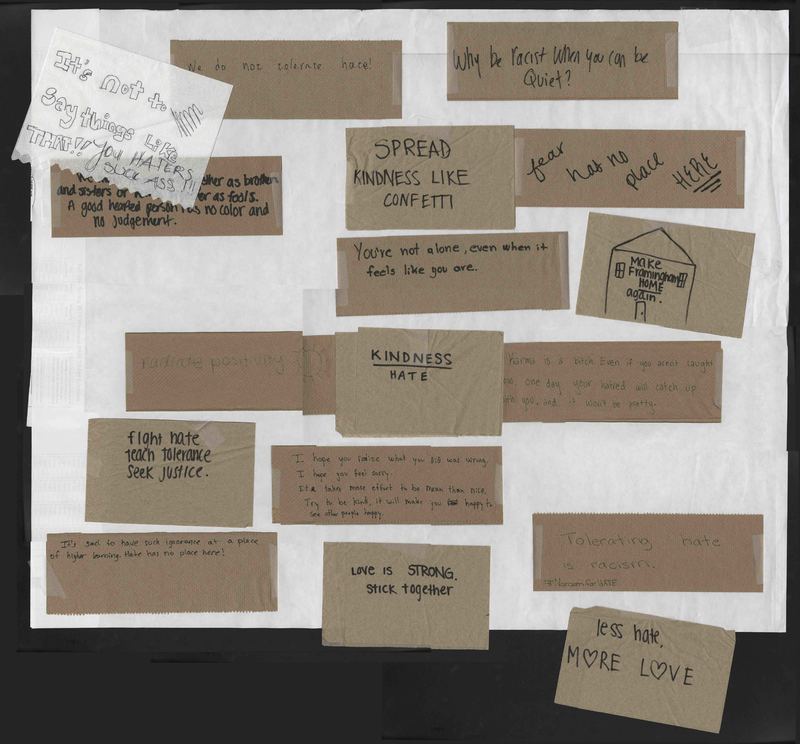 It's not to
say things like
THAT!! YOU HATERS
SUCK ASS!!!
We do not tolerate hate!
Why be racist when you can be
Quiet?
together as brothers
and sisters or as fools.
A good hearted person has no color and
no judgement.
SPREAD
KINDNESS LIKE
CONFETTI
fear
has no
place
HERE
You're not alone, even when it
feels like you are.
Make
Framingham
HOME
again.
Radiate positivity
KINDNESS
HATE
Karma is a bitch. Even if you aren't caught
now, one day your hatred will catch up
with you, and it won't be pretty.
fight hate
teach tolerance
seek justice.
I hope you realize what you did was wrong.
I hope you feel sorry.
It takes more effort to be mean than nice.
Try to be kind, it will make you happy to
see other people happy.
It's sad to have such ignorance at a place
of higher learning. Hate has no place here!
LOVE is STRONG.
stick together
Tolerating hate
is racism.
#NoroomforHATE
less hate,
MORE LOVE